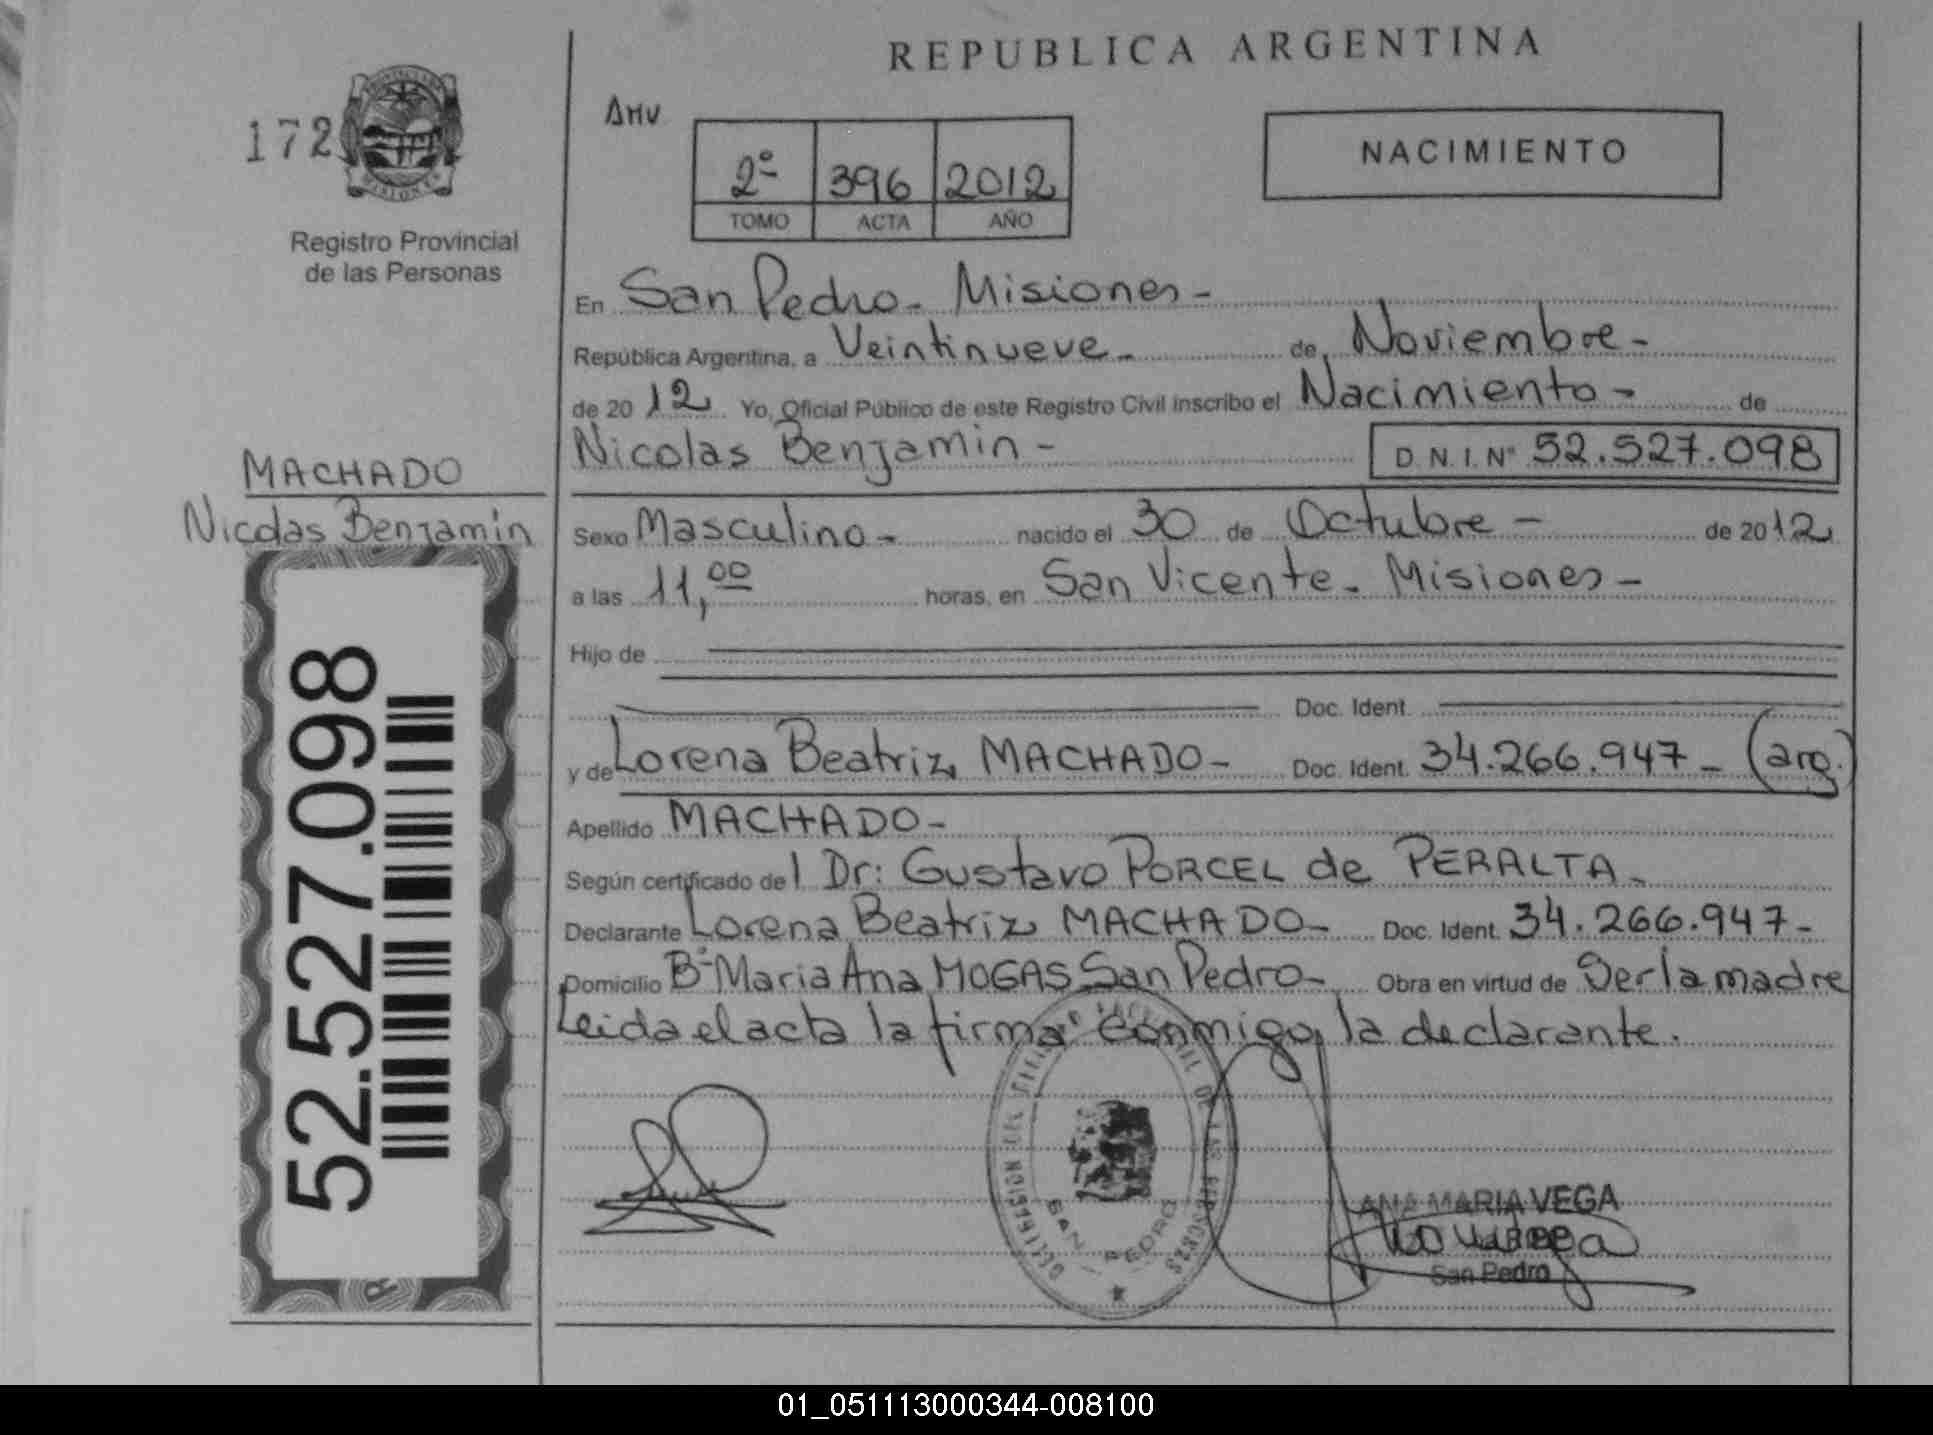 REPUBLICA ARGENTINA
172
AMV
2º 396 2012
TOMO ACTA AÑO
NACIMIENTO
MISIONES
Registro Provincial
de las Personas
En San Pedro - Misiones -
República Argentina, a Veintinueve - de Noviembre -
de 2012 Yo, Oficial Público de este Registro Civil inscribo el Nacimiento - de
Nicolas Benjamin - D.N.I. Nº 52.527.098
MACHADO
Nicolas Benjamin
Sexo Masculino - nacido el 30 de Octubre - de 2012
a las 11,00 horas, en San Vicente - Misiones -
Hijo de
Doc. Ident.
y de Lorena Beatriz MACHADO - Doc. Ident. 34.266.947 - (arg.)
Apellido MACHADO -
Según certificado del Dr: Gustavo PORCEL de PERALTA -
Declarante Lorena Beatriz MACHADO - Doc. Ident. 34.266.947 -
Domicilio Bº Maria Ana MOGAS San Pedro - Obra en virtud de Ser la madre
Leida el acta la firma conmigo la declarante.
52.527.098
R
SAN PEDRO
ANA MARIA VEGA
San Pedro
01_051113000344-008100